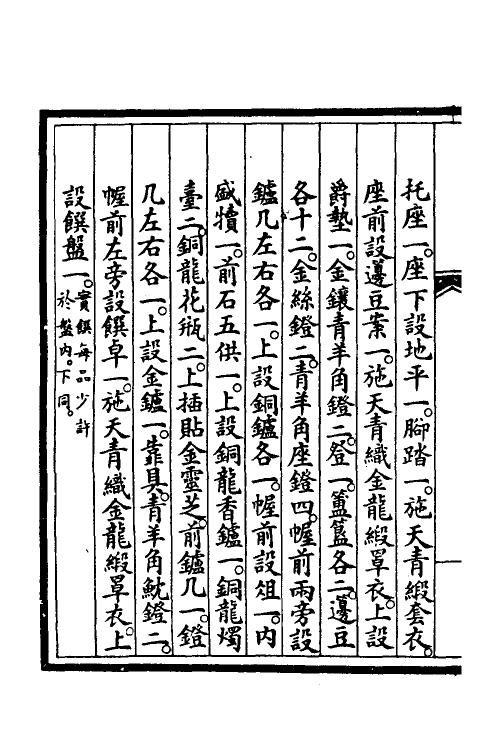 托座一。座下設地平一。腳踏一。施天青緞套衣。
座前設籩豆案一。施天青織金龍緞罩衣。上設
爵墊一。金鑲青羊角鐙二。登一。簠簋各二。籩豆
各十二。金絲鐙二。青羊角座鐙四。幄前兩旁設
鑪几左右各一。上設銅鑪各一。幄前設俎一。内
盛犢一。前石五供一。上設銅龍香鑪一。銅龍燭
臺二。銅龍花瓶二。上插貼金靈芝。前鑪几一。鐙
几左右各一。上設金鑪一。靠具。青羊角魫鐙二。
幄前左旁設饌卓一。施天青織金龍緞罩衣。上
設饌盤一。實饌每品少許
於盤内。下同。